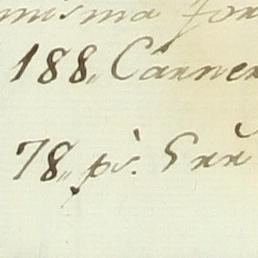 misma for
188,, Carner
78,, ps. Grr